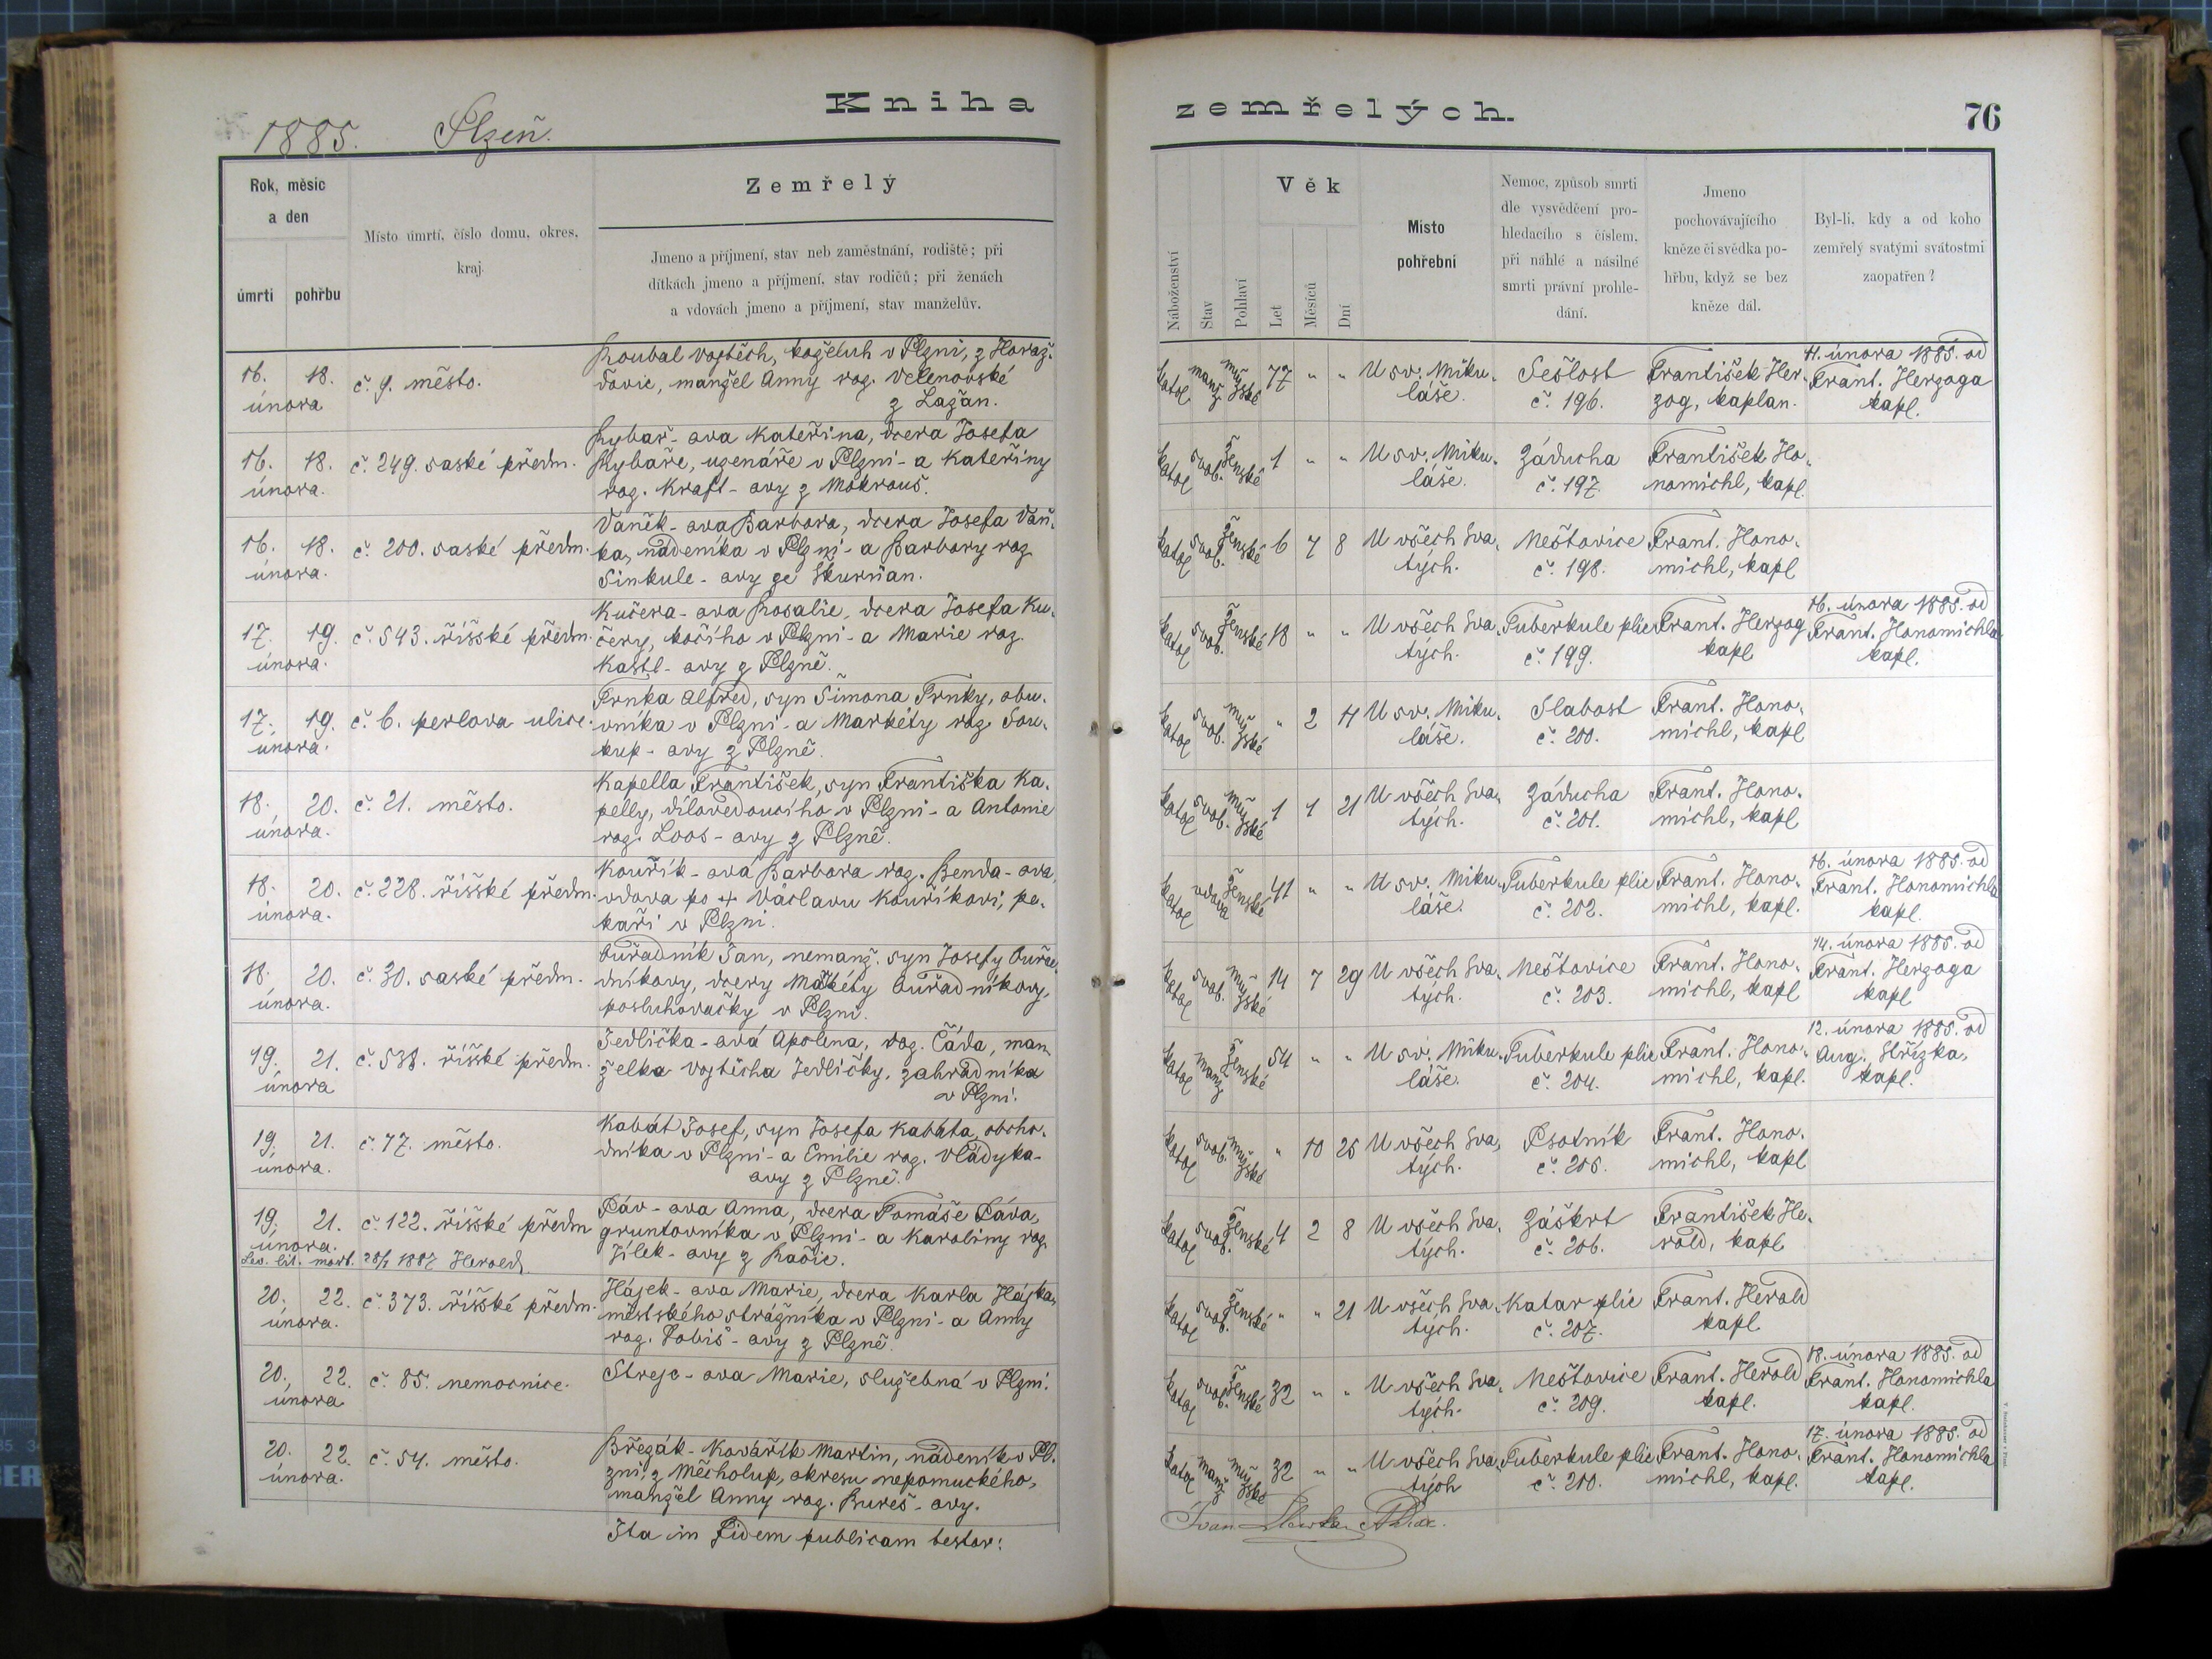 Kniha zemřelých.
76
1885. Plzeň.
Rok, měsíc
a den
úmrtí
pohřbu
Místo úmrtí, číslo domu, okres,
kraj.
Zemřelý
Jmeno a příjmení, stav neb zaměstnání, rodiště; při
dítkách jmeno a příjmení, stav rodičů; při ženách
a vdovách jmeno a příjmení, stav manželův.
Náboženství
Stav
Pohlaví
Věk
Let
Měsíců
Dní
Místo
pohřební
Nemoc, způsob smrti
dle vysvědčení pro-
hledacího s číslem,
při náhlé a násilné
smrti právní prohle-
dání.
Jmeno
pochovávajícího
kněze či svědka po-
hřbu, když se bez
kněze dál.
Byl-li, kdy a od koho
zemřelý svatými svátostmi
zaopatřen?
16. února
18.
č. 9. město.
Koubal Vojtěch, koželuh v Plzni, z Horaž-
ďovic, manžel Anny roz. Velenovské
z Lažan.
katol manž mužské 77 " "
U sv. Miku-
láše.
Sešlost
č. 196.
František Her-
zog, kaplan.
11. února 1885. od
Frant. Herzoga
kapl.
16. února.
18.
č. 249. saské předm.
Rybař-ova Kateřina, dcera Josefa
Rybaře, uzenáře v Plzni - a Kateřiny
roz. Kraft-ovy z Mokrouš.
katol svob. ženské 1 " "
U sv. Miku-
láše.
Záducha
č. 197.
František Ho-
nomichl, kapl.
16. února.
18.
č. 200. saské předm.
Vaněk-ova Barbora, dcera Josefa Vaň-
ka, nádeníka v Plzni - a Barbory roz.
Sinkule-ovy ze Skurňan.
katol svob. ženské 6 7 8
U všech Sva-
tých.
Neštovice
č. 198.
Frant. Hono-
michl, kapl
17. února.
19.
č. 543. říšské předm.
Kučera-ova Rosalie, dcera Josefa Ku-
čery, kočího v Plzni - a Marie roz.
Kastl-ovy z Plzně.
katol svob. ženské 18 " "
U všech Sva-
tých.
Tuberkule plic
č. 199.
Frant. Herzog
kapl
16. února 1885. od
Frant. Honomichla
kapl.
17. února.
19.
č. 6. perlova ulice.
Trnka Alfred, syn Šimona Trnky, obu-
vníka v Plzni - a Markéty roz. Sou-
kup-ovy z Plzně.
katol svob. mužské " 2 11
U sv. Miku-
láše.
Slabost
č. 200.
Frant. Hono-
michl, kapl
18. února.
20.
č. 21. město.
Kapella František, syn Františka Ka-
pelly, dílovedoucího v Plzni - a Antonie
roz. Loos-ovy z Plzně.
katol svob. mužské 1 1 21
U všech Sva-
tých.
Záducha
č. 201.
Frant. Hono-
michl, kapl
18. února.
20.
č. 228. říšské předm.
Kouřík-ová Barbora roz. Benda-ova,
vdova po + Václavu Kouříkovi, pe-
kaři v Plzni.
katol vdova ženské 41 " "
U sv. Miku-
láše.
Tuberkule plic
č. 202.
Frant. Hono-
michl, kapl.
16. února 1885. od
Frant. Honomichla
kapl.
18. února.
20.
č. 30. saské předm.
Ouřadník Jan, nemanž. syn Josefy Ouřa-
dníkovy, dcery Markéty Ouřadníkovy,
posluhovačky v Plzni.
katol svob. mužské 14 7 29
U všech Sva-
tých.
Neštovice
č. 203.
Frant. Hono-
michl, kapl
14. února 1885. od
Frant. Herzoga
kapl
19. února
21.
č. 538. říšské předm.
Jedlička-ová Apolena, roz. Čáda, man-
želka Vojtěcha Jedličky, zahradníka
v Plzni.
katol manž ženské 54 " "
U sv. Miku-
láše.
Tuberkule plic
č. 204.
Frant. Hono-
michl, kapl.
12. února 1885. od
Aug. Střízka,
kapl.
19. února.
21.
č. 77. město.
Kabát Josef, syn Josefa Kabáta, obcho-
dníka v Plzni - a Emilie roz. Vládyka-
ovy z Plzně.
katol svob. mužské " 10 25
U všech Sva-
tých.
Psotník
č. 205.
Frant. Hono-
michl, kapl
19. února.
21.
č. 122. říšské předm
Páv-ova Anna, dcera Tomáše Páva,
gruntovníka v Plzni - a Karoliny roz.
Jílek-ovy z Račic.
katol svob. ženské 4 2 8
U všech Sva-
tých.
Záškrt
č. 206.
František He-
rold, kapl
lit. mort. 1887 Herold
20. února.
22.
č. 373. říšské předm.
Hájek-ova Marie, dcera Karla Hájka,
městského strážníka v Plzni - a Anny
roz. Tobiš-ovy z Plzně.
katol svob. ženské " " 21
U všech Sva-
tých.
Katar plic
č. 207.
Frant. Herold
kapl
20. února
22.
č. 85. nemocnice.
Strejc-ova Marie, služebná v Plzni.
katol svob. ženské 32 " "
U všech Sva-
tých.
Neštovice
č. 209.
Frant. Herold
kapl.
18. února 1885. od
Frant. Honomichla
kapl.
20. února.
22.
č. 54. město.
Březák-Kovářík Martin, nádeník v Pl-
zni, z Měcholup, okresu nepomuckého,
manžel Anny roz. Bureš-ovy.
katol manž mužské 32 " "
U všech Sva-
tých
Tuberkule plic
č. 210.
Frant. Hono-
michl, kapl.
17. února 1885. od
Frant. Honomichla
kapl.
Ita in fidem publicam testor: